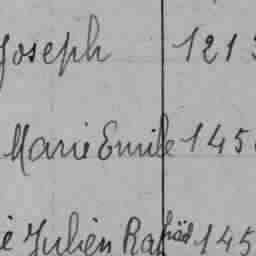 Joseph 121
Marie Emile 145
Julien Raphaël 145